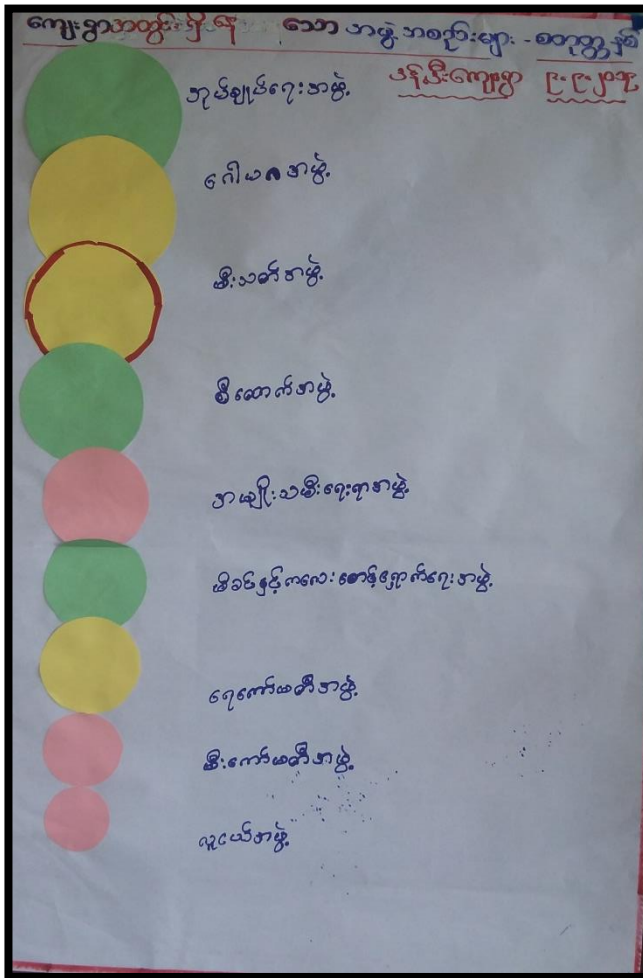 ကျေးရွာအတွင်းရှိနေသော အဖွဲ့အစည်းများ - စတုတ္ထနှစ်
ဒန်သီးကျေးရွာ ၉.၉.၂၀၁၉
အုပ်ချုပ်ရေးအဖွဲ့
ဂေါပကအဖွဲ့
မီးသတ်အဖွဲ့
စီဆောက်အဖွဲ့
အမျိုးသမီးရေးရာအဖွဲ့
မိခင်နှင့်ကလေးစောင့်ရှောက်ရေးအဖွဲ့
ရေကော်မတီအဖွဲ့
မီးကော်မတီအဖွဲ့
လူငယ်အဖွဲ့